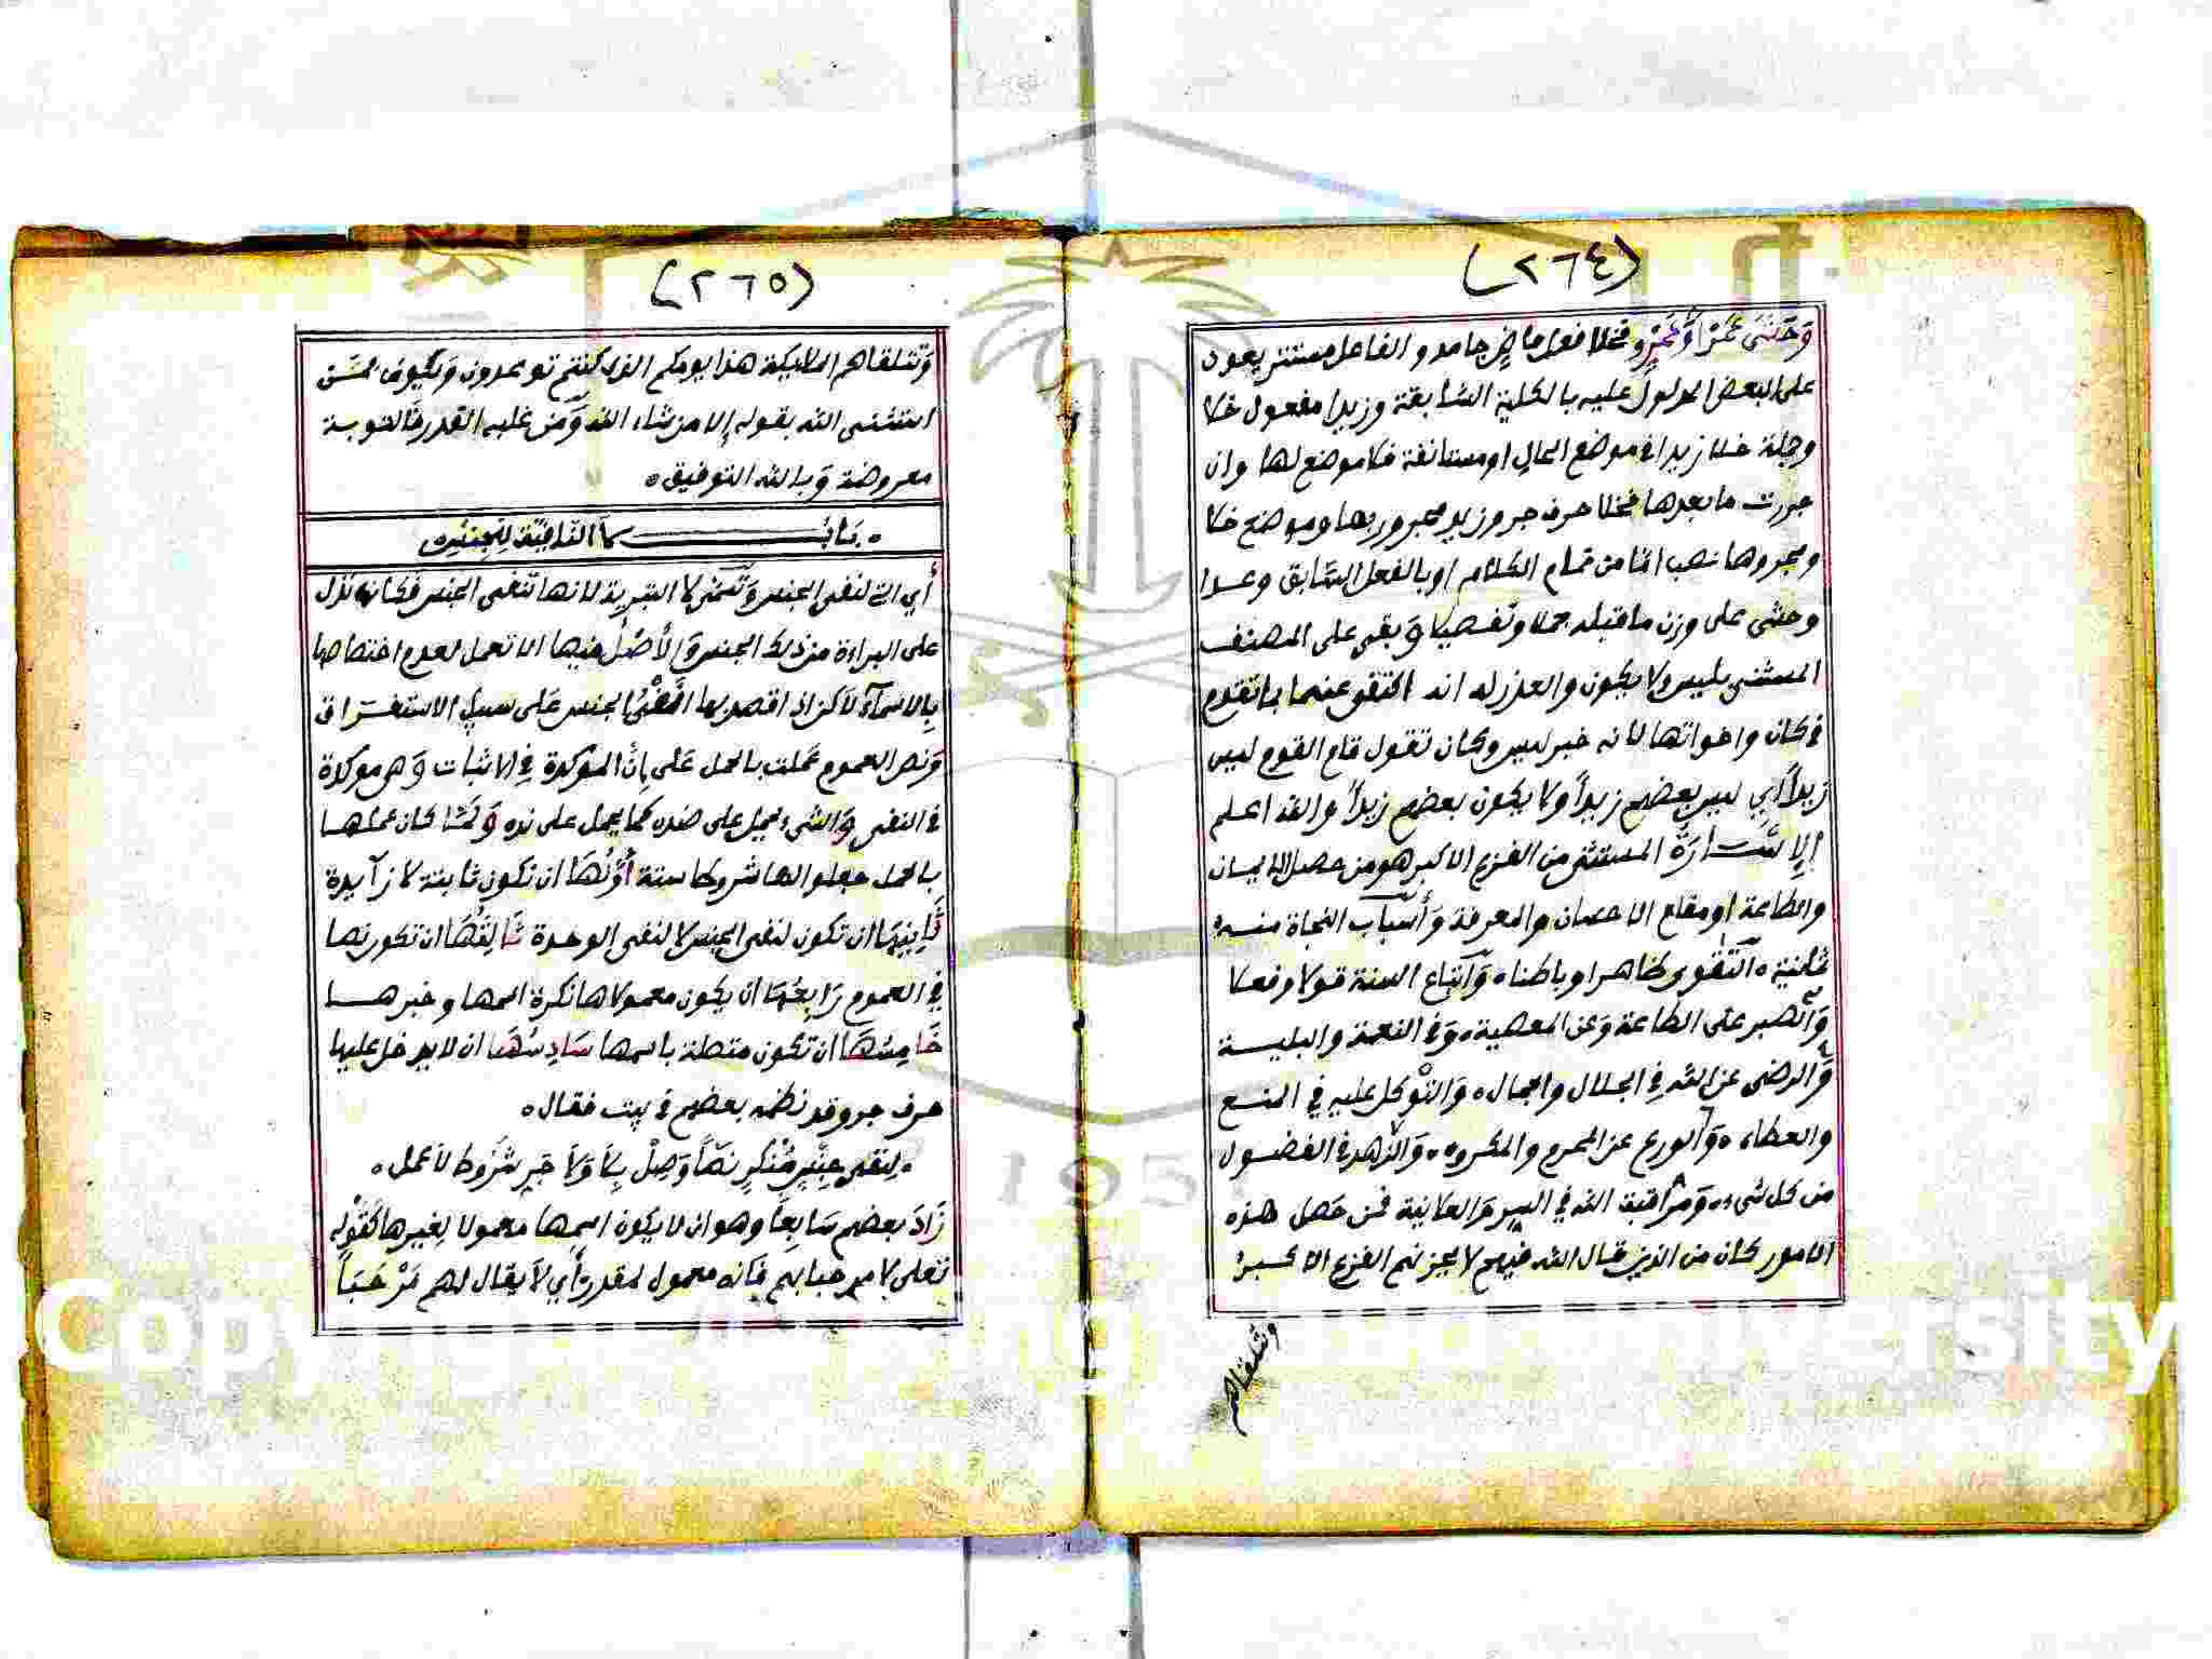 (٢٦٤)
وَحَشَى عَمْرًا وَعَمْرٍو فخلا فعل ماضٍ جامد والفاعل مستتر يعود
على البعض المدلول عليه بالكلية السابقة وزيدا مفعول خلا
وجلة خلا زيدا في موضع الحال او مستانفة فلا موضع لها وان
جررت ما بعدها فخلا حرف جر وزيد مجرور بها وموضع خلا
ومجروها نصب اما من تمام الكلام او بالفعل السّابق وعدا
وحشى على وزن ما قبله جملا وتفصيلا وَبقى على المصنف
المستثنى بليس ولا يكون والعذر له انه اكتفى عنهما بما تقدم
في كان واخواتها لانه خبر ليس وكان تقول قام القوم ليس
زيداً أي ليس بعضهم زيداً ولا يكون بعضهم زيداً والله اعلم
الإِشَـارَةُ المستثنى من الفزع الاكبر هو من حصل الايمان
والطاعة او مقام الاحسان والمعرفة وَأسباب النجاة منه
ثمانية ۰ التقوى ظاهرا وباطنا ۰ وَاتباع السنة قولا وفعلا
وَالصبر على الطاعة وَعن المعصية ۰ وَفي النعمة والبلية
وَالرضى عن الله في الجلال والجمال ۰ وَالتوكل عليه في المنع
والعطاء ۰ وَالورع عن المحرم والمكروه ۰ وَالزهد في الفضول
من كل شيء ۰ وَمراقبة الله في السر وَالعلانية فمن حَصل هذه
الامور كان من الذين قال الله فيهم لا يحزنهم الفزع الاكبرُ
وتتلقاهم
(٢٦٥)
وَتتلقاهم الملايكة هذا يومكم الذي كنتم توعدون وَيكون ممـن
استثنى الله بقوله إلا من شاء الله وَمن غلبه القدر فَالتوبة
معروضة وَبالله التوفيق ۰
۰ بَابُ لا النَّافِيَّة لِلجِنسِ ۰
أي التي لنفي الجنس وَتُسَمَّى لا التبرية لانها تنفي الجنس فكانها تدل
على البراءة من ذلك الجنس وَالأصْلُ فيها الا تعمل لعدم اختصاصها
بِالاسمآء لاكن اذا قصد بها نفي الجنس عَلى سبيل الاستغـراق
وَنص العموم عملت بالحمل عَلى إِنَّ المؤكدة فِي الاثبات وَهي موكدة
في النفي وَالشيء يحمل على ضده كما يحمل على نده وَلما كان عملهـا
بالحمل جعلوا لها شروطا ستة أوَّلُهَا ان تكون نافية لا زآيدة
ثَانِيهَا ان تكون لنفي الجنس لا لنفي الوحدة ثَالِثُهَا ان تكون نصا
فِي العموم رَابِعُهَا ان يكون معمولاها نكرة اسمها وخبرهـا
خَامِسُهَا ان تكون متصلة باسمها سَادِسُهَا ان لا يدخل عليها
حرف جر وقد نظمه بعضهم في بيت فقال ۰
۰ لِنفي جِنْسٍ مُنْكرٍ نَصّاً وَصِلْ بِلَا وَلَا جَرٍ شُرُوطُ لا عمل ۰
زَادَ بعضهم سَابِعاً وهو ان لا يكون اسمها معمولا لِغيرها كَقَوْلِهِ
تعلى لا مرحبا بهم فَانه معمول لمقدر أي لاَ يقال لهم مَرْحَبَاً